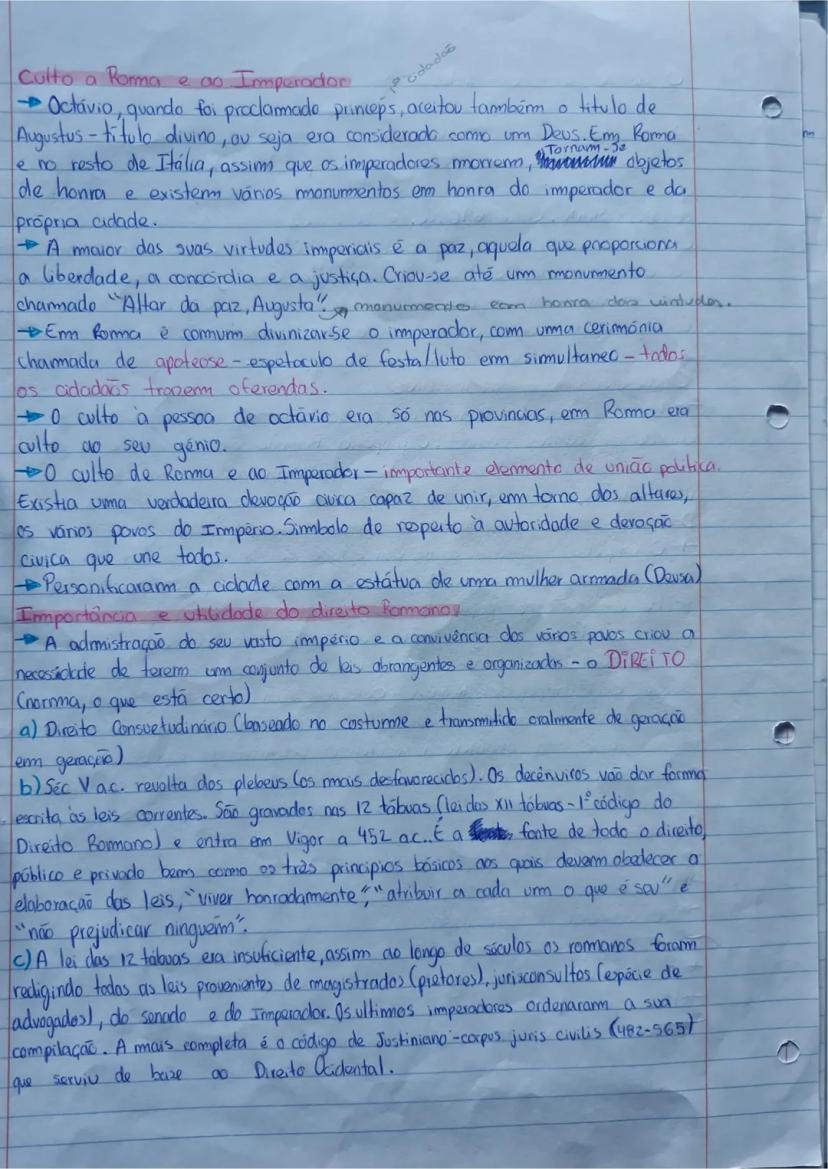 Culto a Roma e ao Imperador
1º cidadão
→ Octávio, quando foi proclamado princeps, aceitou também o titulo de
Augustus - título divino, ou seja era considerado como um Deus. Em Roma
e no resto de Itália, assim que os imperadores morrem, Tornam-se objetos
de honra e existem vários monumentos em honra do imperador e da
própria cidade.
→ A maior das suas virtudes imperiais é a paz, aquela que proporciona
a liberdade, a concórdia e a justiça. Criou-se até um monumento
chamado "Altar da paz, Augusta" → monumento em honra das virtudes.
→ Em Roma é comum divinizar-se o imperador, com uma cerimónia
chamada de apoteose - espetaculo de festa/luto em simultaneo - todos
os cidadãos trazem oferendas.
→ O culto à pessoa de octávio era só nas provincias, em Roma era
culto ao seu génio.
→ O culto de Roma e ao Imperador - importante elemento de união politica.
Existia uma verdadeira devoção civica capaz de unir, em torno dos altares,
os vários povos do Império. Simbolo de respeito à autoridade e devoção
civica que une todos.
→ Personificaram a cidade com a estátua de uma mulher armada (Deusa)
Importância e utilidade do direito Romano,
→ A admistração do seu vasto império e a convivência dos vários povos criou a
necessidade de terem um conjunto de leis abrangentes e organizadas - o DIREITO
(norma, o que está certo)
a) Direito Consuetudinário (baseado no costume e transmitido oralmente de geração
em geração)
b) Séc V ac. revolta dos plebeus (os mais desfavorecidos). Os decênviros vão dar forma
escrita às leis correntes. São gravados nas 12 tábuas (lei das XII tábuas - 1º código do
Direito Romano) e entra em Vigor a 452 ac.. É a fonte de todo o direito,
público e privado bem como os três principios básicos aos quais devem obedecer a
elaboração das leis, "viver honradamente", "atribuir a cada um o que é seu" e
"não prejudicar ninguém".
c) A lei das 12 tábuas era insuficiente, assim ao longo de séculos os romanos foram
redigindo todas as leis provenientes de magistrados (pretores), jurisconsultos (espécie de
advogados), do senado e do Imperador. Os ultimos imperadores ordenaram a sua
compilação. A mais completa é o código de Justiniano - corpus juris civilis (482-565)
que serviu de base ao Direito Ocidental.